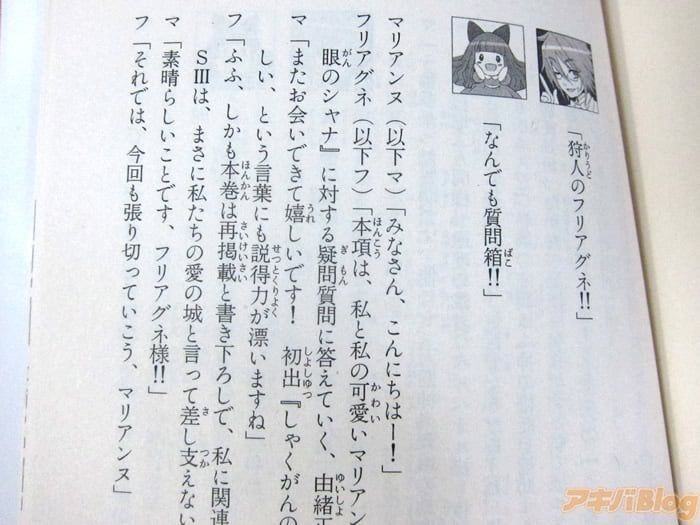 「狩人のフリアグネ!!」
かりうど
「なんでも質問箱!!」
ばこ
マリアンヌ（以下マ）「みなさん、こんにちはー!」
フリアグネ（以下フ）「本項は、私と私の可愛いマリアン
ほんこう
かわい
眼のシャナ』に対する疑問質問に答えていく、由緒正
がん
ぎもん
ゆいしょ
マ「またお会いできて嬉しいです! 初出『しゃくがんの
うれ
しよしゆつ
しい、という言葉にも説得力が漂いますね」
せつとくりよく
フ「ふふ、しかも本巻は再掲載と書き下ろしで、私に関連
ほんかん
さいけいさい
SⅢは、まさに私たちの愛の城と言って差し支えない
さ
つか
マ「素晴らしいことです、フリアグネ様!!」
フ「それでは、今回も張り切っていこう、マリアンヌ」
アキバBlog